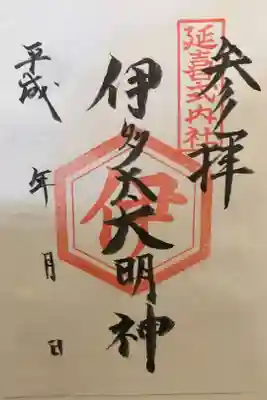 参拝
延喜式内社
伊多太大明神
伊
平成 年 月 日